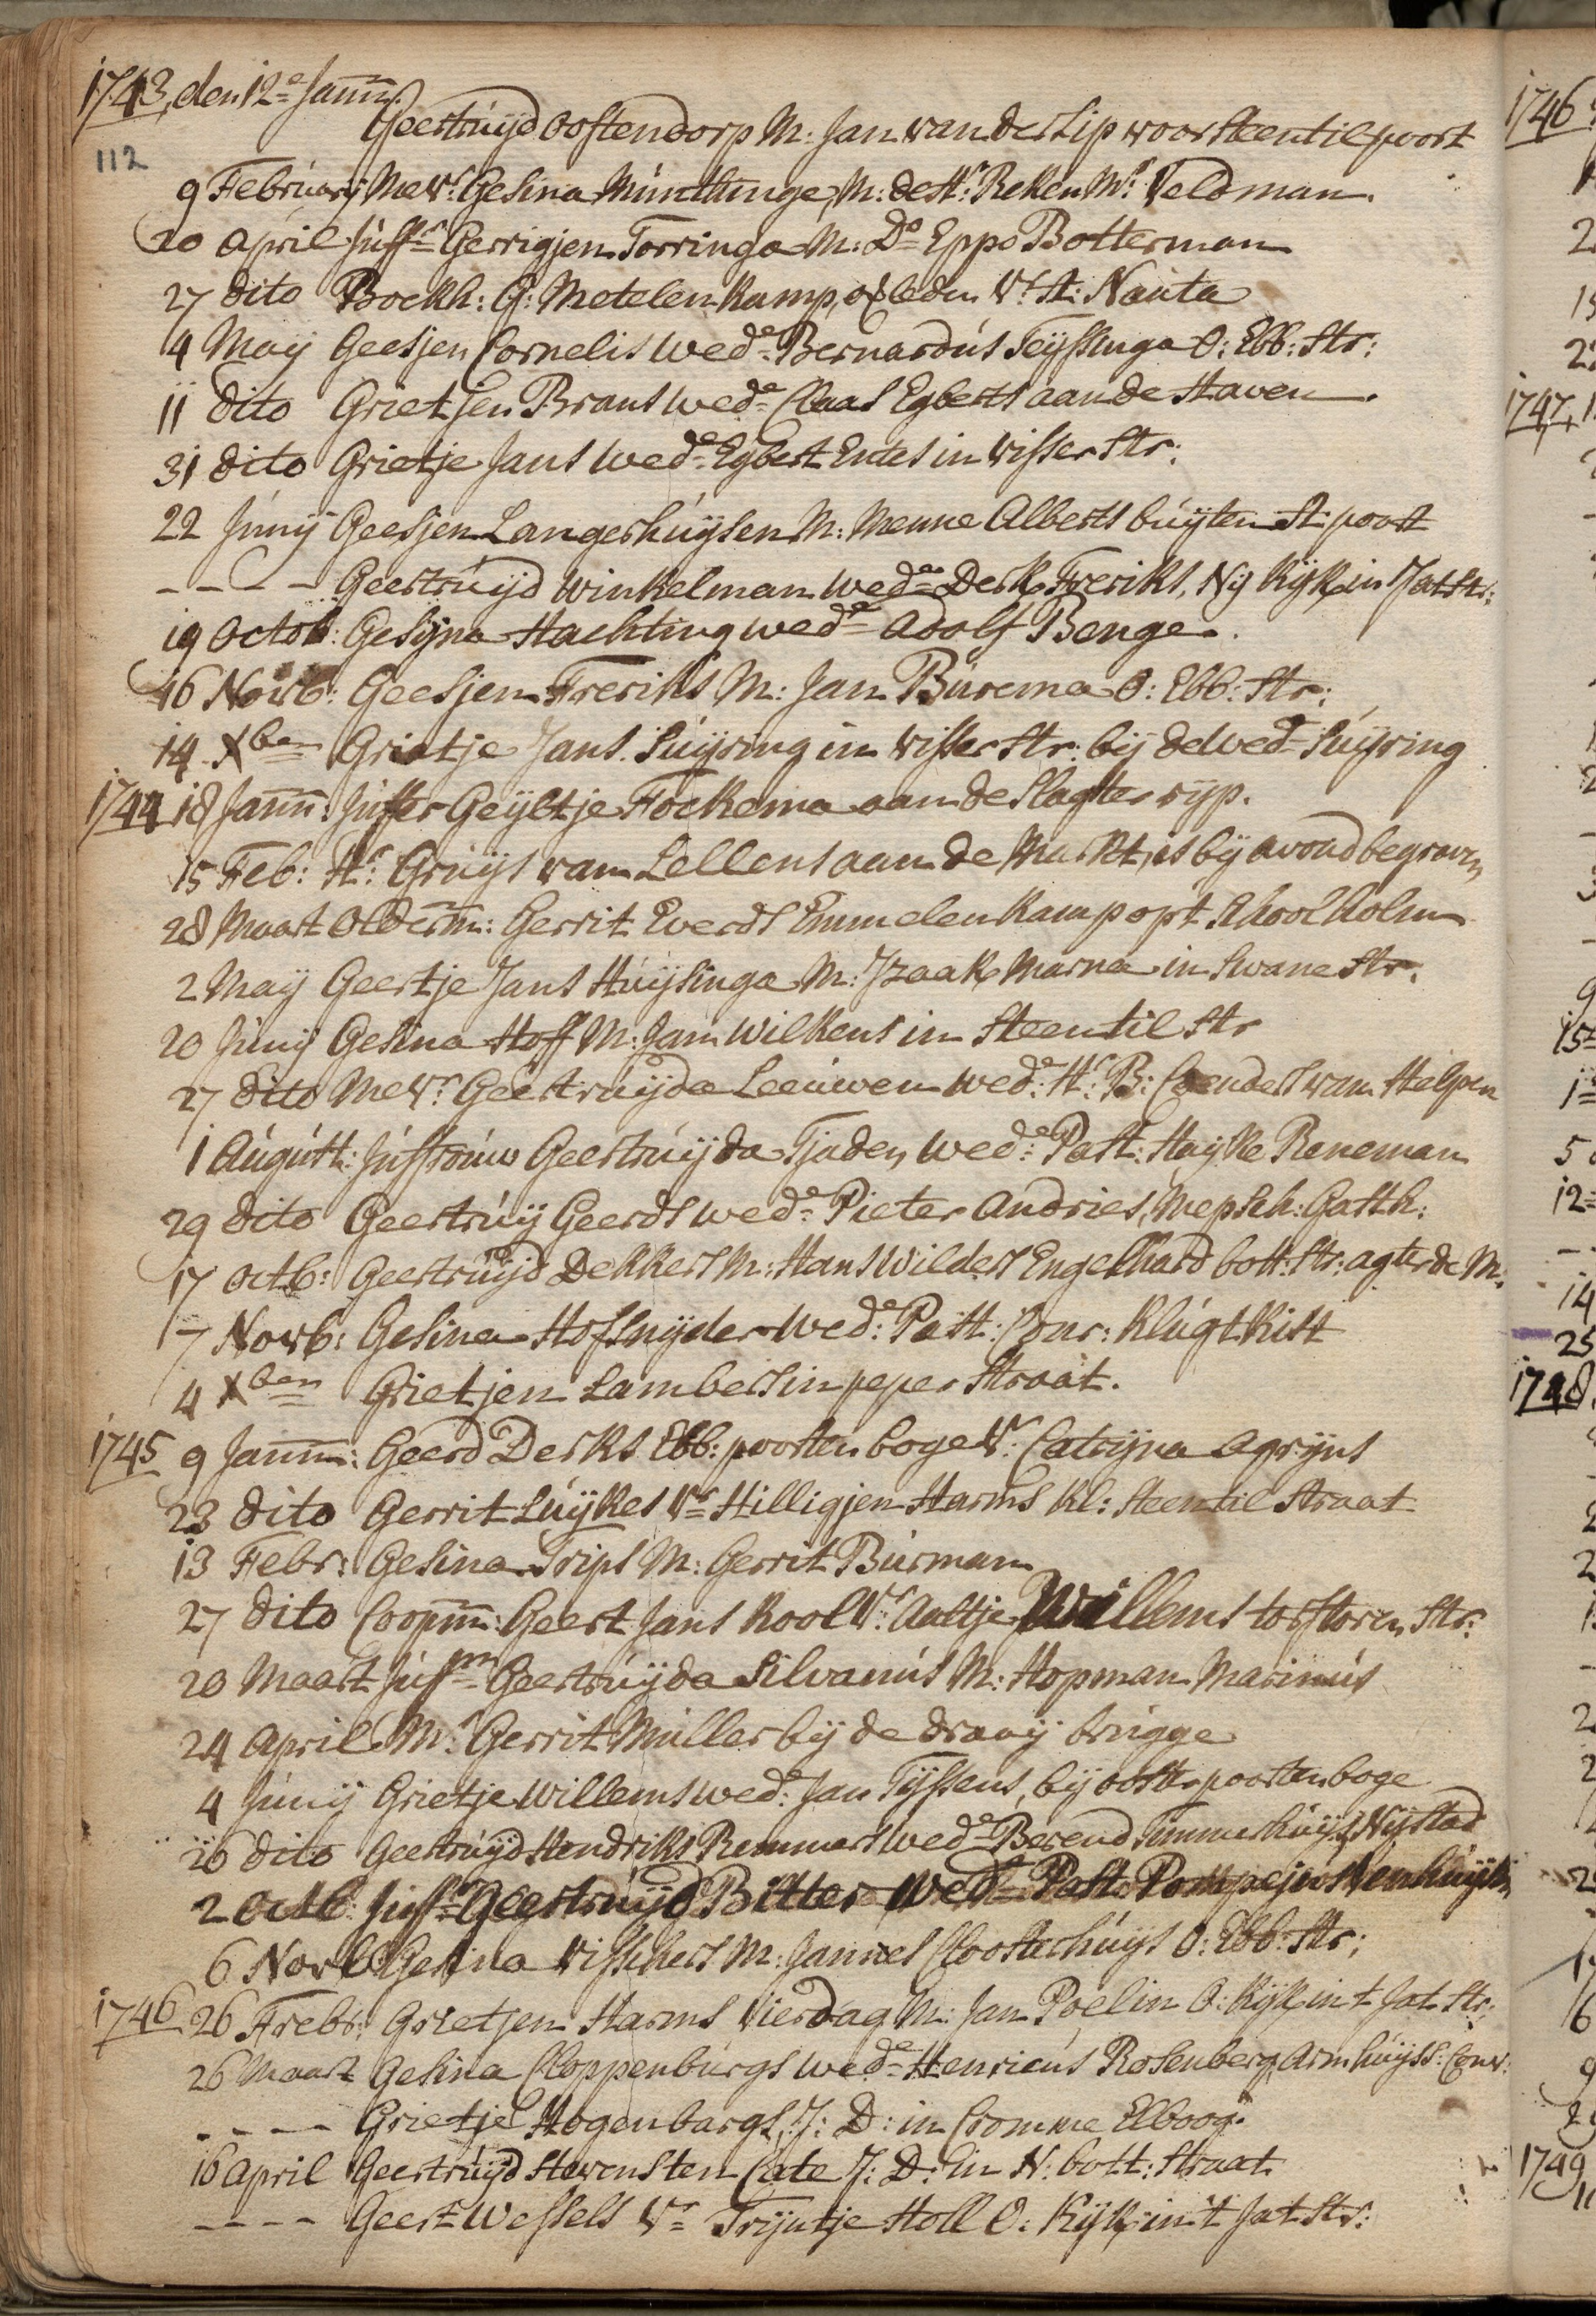 1743, den 12e Jann:
Geertrúijd Oostendorp M: Jan van der Lip voor steentilpoort
112
9 Februarij Mevr: Gesina Múnttinge, M: de Hr: Reken Mr: Veldman.
20 April Júffr Gerrigjen Torringa M: Do Eppo Botterman
27 dito Boekh: G: Metelenkamp, Vr A: Naúta
4 Maij Geesjen Cornelis wede Bernardús Teijssinga O: Ebb: Str:
11 dito Grietjen Brans wede Claas Egberts aan de Haven.
31 dito Grietje Jans wede Egbert Entes in Visser Str:
22 Júnij Geesjen Langerhúijsen M: Menne Alberts búijten St: poort
- - - - Geertrúijd Winkelman wede Derk Freriks, Nij Kijk in Jat Str:
19 Octob: Gesijna Hachting wede Adolf Benge.
16 Novb: Geesjen Freriks M: Jan Búrema O: Ebb: Str:
14 Xber Grietje Jans Súijring in Visser Str: bij de wed Súijring
1744 18 Jann: Júffer Geijltje Fockema aan de Slagter rijp.
15 Feb: Hr: Grúijs van Lellens aan de Markt, is bij avond begraven
28 Maart Olderm: Gerrit Everds Emmelenkamp op't Schoolholm
2 Maij Geertje Jans Húijsinga M: Izaak Marna in Swane Str.
20 Júnij Gesina Hoff M: Jan Wilkens in Steentil Str
27 dito Mevr: Geertrúijda Leeúwen wede: Hr: B: Coenders van Helpen
1 Aúgúst: Júffroúw Geertrúijda Tjaden, wede: Past: Haijke Reneman
29 dito Geertrúij Geerds wede: Pieter Andries, Mepsch: Gasth:
17 Octb: Geertrúijd Dekkers M: Hans Wilders Engelhard bott: Str: agter de M:
7 Novb: Gesina Hofsnijder wede: Past: Conr: Klúgtkist
4 Xber Grietjen Lamberts in peper Straat.
1745 9 Jann: Geerd Derks Ebb: poorten boge Vr: Catrijna Agrijns
23 dito Gerrit Lúijkes Vr Hilligjen Harms Kl: Steentil Straat
13 Febr: Gesina Trips M: Gerrit Búrman
27 dito Coopm: Geert Jans Kool Vr: Aaltje Willems torstoren Str:
20 Maart Júffr Geertrúijda Silvanús M: Hopman Marinús
24 April Mr: Gerrit Múller bij de draaij brúgge
4 Júnij Grietje Willems wede: Jan Tijssens, bij ooster poorten boge
26 dito Geertrúijd Hendriks Remmers wede Berend Timmerhúijs, Nijstad
2 Octb: Júffr Geertrúijd Bitter wede Past: Pompejus
6 Novb: Gesina Visschers M: Jannes Cloosterhúijs O: Ebb: Str;
1746 26 Febr: Grietjen Harms Vierdag M: Jan Poelin O: Kijk in t Jat Str:
26 Maart Gesina Cloppenbúrgs wede Henricús Rosenberg, Armhúijss: Conv:
- - - - Grietje Hogenbargs, J: D: in Cromme Elboog.
16 April Geertrúijd Stevens ten Cate J: D: in N: bott: Straat
- - - - Geert Wessels Vr Trijntje Holl O: Kijk in't Jat Str:
1746
1747
1748
1749